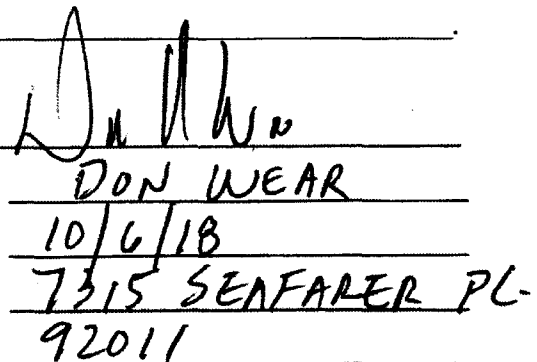 DON WEAR
10/6/18
7315 SEAFARER PL.
92011